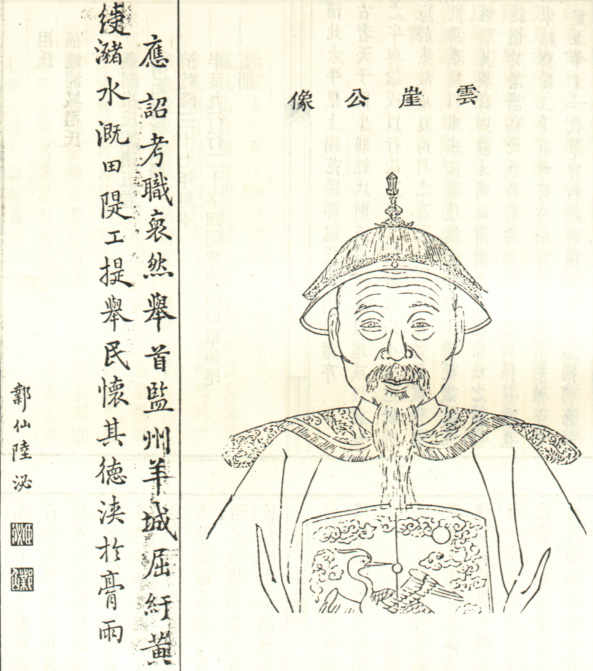 雲崖公像
應詔考職裒然舉首監州羊城屈紆黃
綬瀦水溉田隄工提舉民懷其德浹於膏雨
鄴仙陸泌